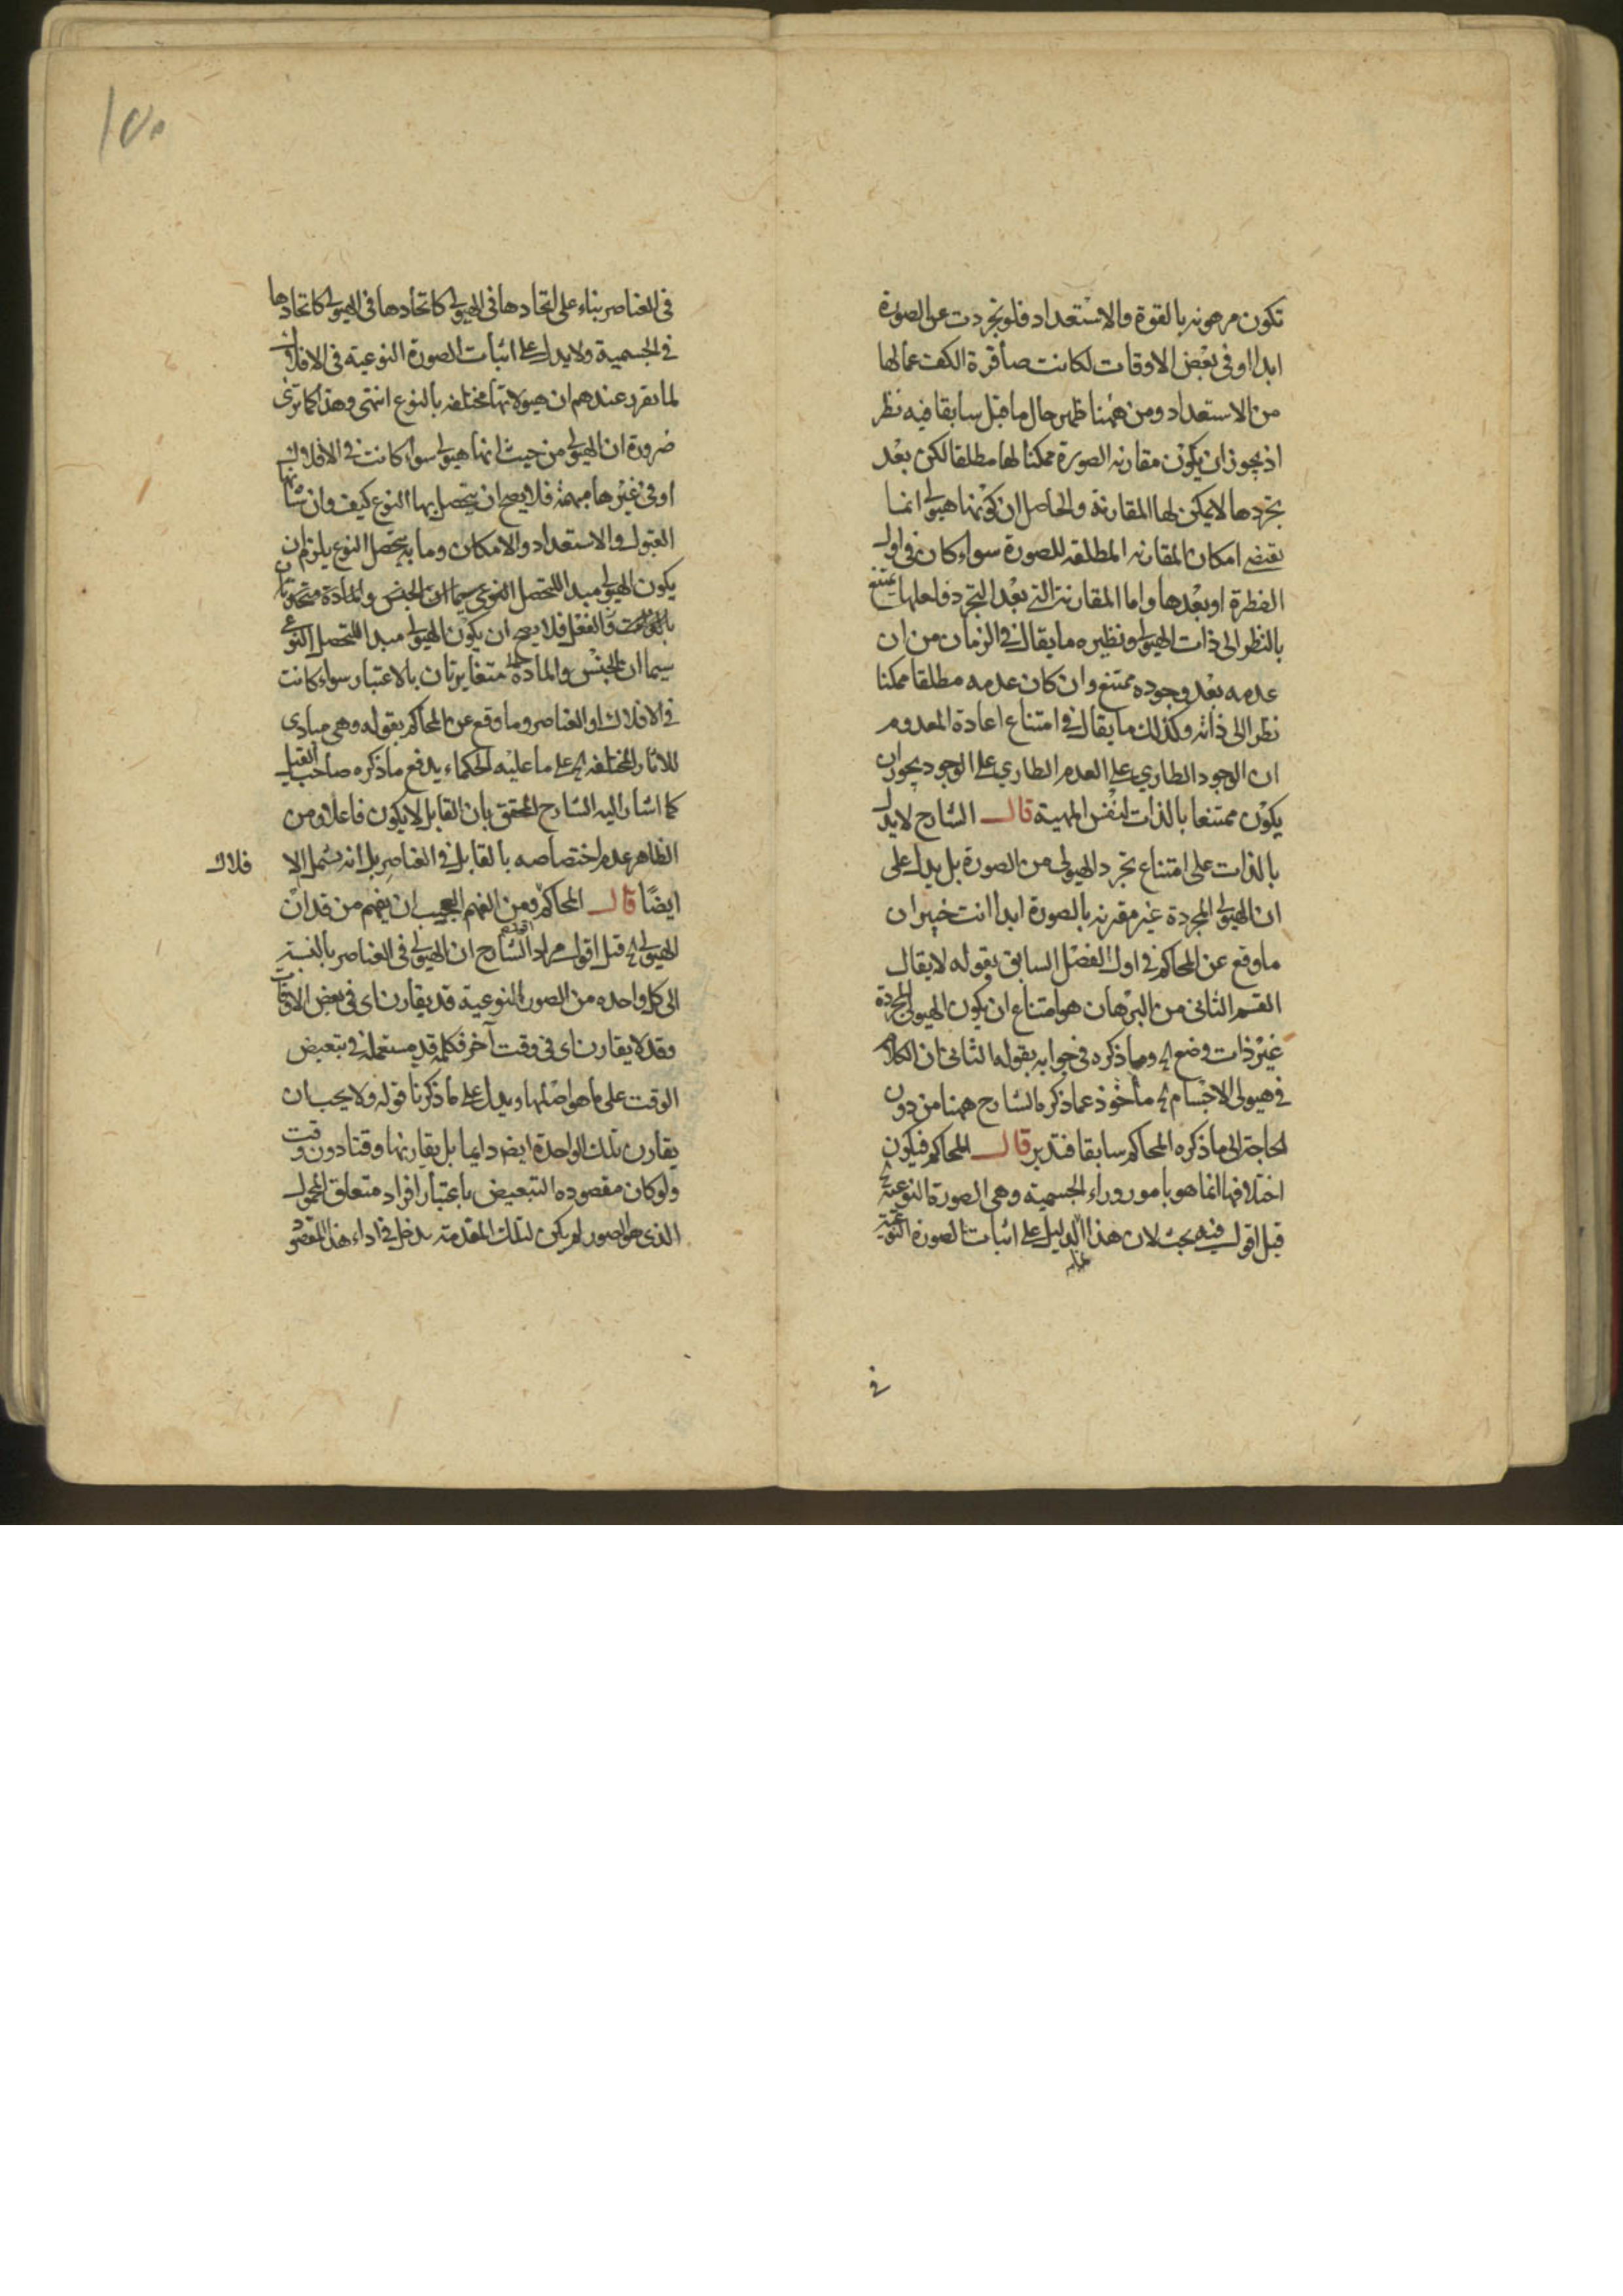 تكون مرهونه بالقوة والاستعداد فلو تجردت عن الصورة
ابدا او فى بعض الاوقات لكانت صافرة الكف عما لها
من الاستعداد ومن ههنا ظهر حال ما قيل سابقا فيه نظر
اذ يجوز ان يكون مقارنه الصورة ممكنا لها مطلقا لكن بعد
تجردها لا يمكن لها المقارنة والحاصل ان كونها هيولى انما
يقتضى امكان المقارنه المطلقه للصورة سواء كان فى اول
الفطرة او بعدها واما المقارنة التى بعد التجرد فلعلها يمتنع
بالنظر الى ذات الهيولى ونظيره ما يقال فى الزمان من ان
عدمه بعد وجوده ممتنع وان كان عدمه مطلقا ممكنا
نظرا الى ذاته وكذلك ما يقال فى امتناع اعادة المعدوم
ان الوجود الطارى على العدم الطارى على الوجود يجوز ان
يكون ممتنعا بالذات لنفس المهية قال الشارح لا يدل
بالذات على امتناع تجرد الهيولى من الصورة بل يدل على
ان الهيولى المجردة غير مقترنه بالصورة ابدا انت خبير ان
ما وقع عن المحاكم فى اول الفصل السابق بقوله لا يقال
القسم الثانى من البرهان هو امتناع ان يكون الهيولى المجردة
غير ذات وضع الخ وما ذكره فى جوابه بقوله الثانى ان الكلام
فى هيولى الاجسام الخ ماخوذ عما ذكره الشارح ههنا من دون
الحاجة الى ما ذكره المحاكم سابقا فتدبر قال المحاكم فيكون
اختلافها انما هو بامور وراء الجسمية وهى الصورة النوعية الخ
قيل اقول فيه بحث لان هذا الدليل على اثبات الصورة النوعية
فى
١٥٠
فى العناصر بناء على اتحادها فى الهيولى كاتحادها فى الهيولى كاتحادها
فى الجسمية ولا يدل على اثبات الصورة النوعية فى الافلاك
لما تقرر عندهم ان هيولاتها مختلفه بالنوع انتهى وهذا كما ترى
ضرورة ان الهيولى من حيث انها هيولى سواء كانت فى الافلاك
او فى غيرها مبهمة فلا يصح ان يتحصل بها النوع كيف وان شانها
القبول والاستعداد والامكان وما به يتحصل النوع يلزم ان
يكون الهيولى مبدا للتحصل النوعى سيما ان الجنس والمادة متحدتان
والفعل فلا يصح ان يكون الهيولى مبدا للتحصل النوعى
سيما ان الجنس والمادة متغايرتان بالاعتبار سواء كانت
فى الافلاك او العناصر وما وقع عن المحاكم بقوله وهى مبادى
للاثار المختلفه الخ على ما عليه الحكماء يدفع ما ذكره صاحب القيل
كما اشار اليه الشارح المحقق بان القابل لا يكون فاعلا ومن
الظاهر عدم اختصاصه بالقابل فى العناصر بل انه يشمل الا فلاك
ايضا قال المحاكم ومن الفهم العجيب ان يفهم من قد ان
الهيولى الخ قيل اقول مراد الشارح ان الهيولى فى العناصر بالنسبة
الى كل واحده من الصور النوعية قد يقارن اى فى بعض الاوقات
وقد لا يقارن اى فى وقت آخر فكلمه قد مستعملة فى تبعيض
الوقت على ما هو اصلها ويدل على ما ذكرنا قوله ولا يجب ان
يقارن تلك الواحدة ايضا دايما بل يقارنها وقتا دون وقت
ولو كان مقصوده التبعيض باعتبار افراد متعلق المحمول
الذى هو الصور لم يكن لتلك المقدمة مدخل فى اداء هذا المقصود